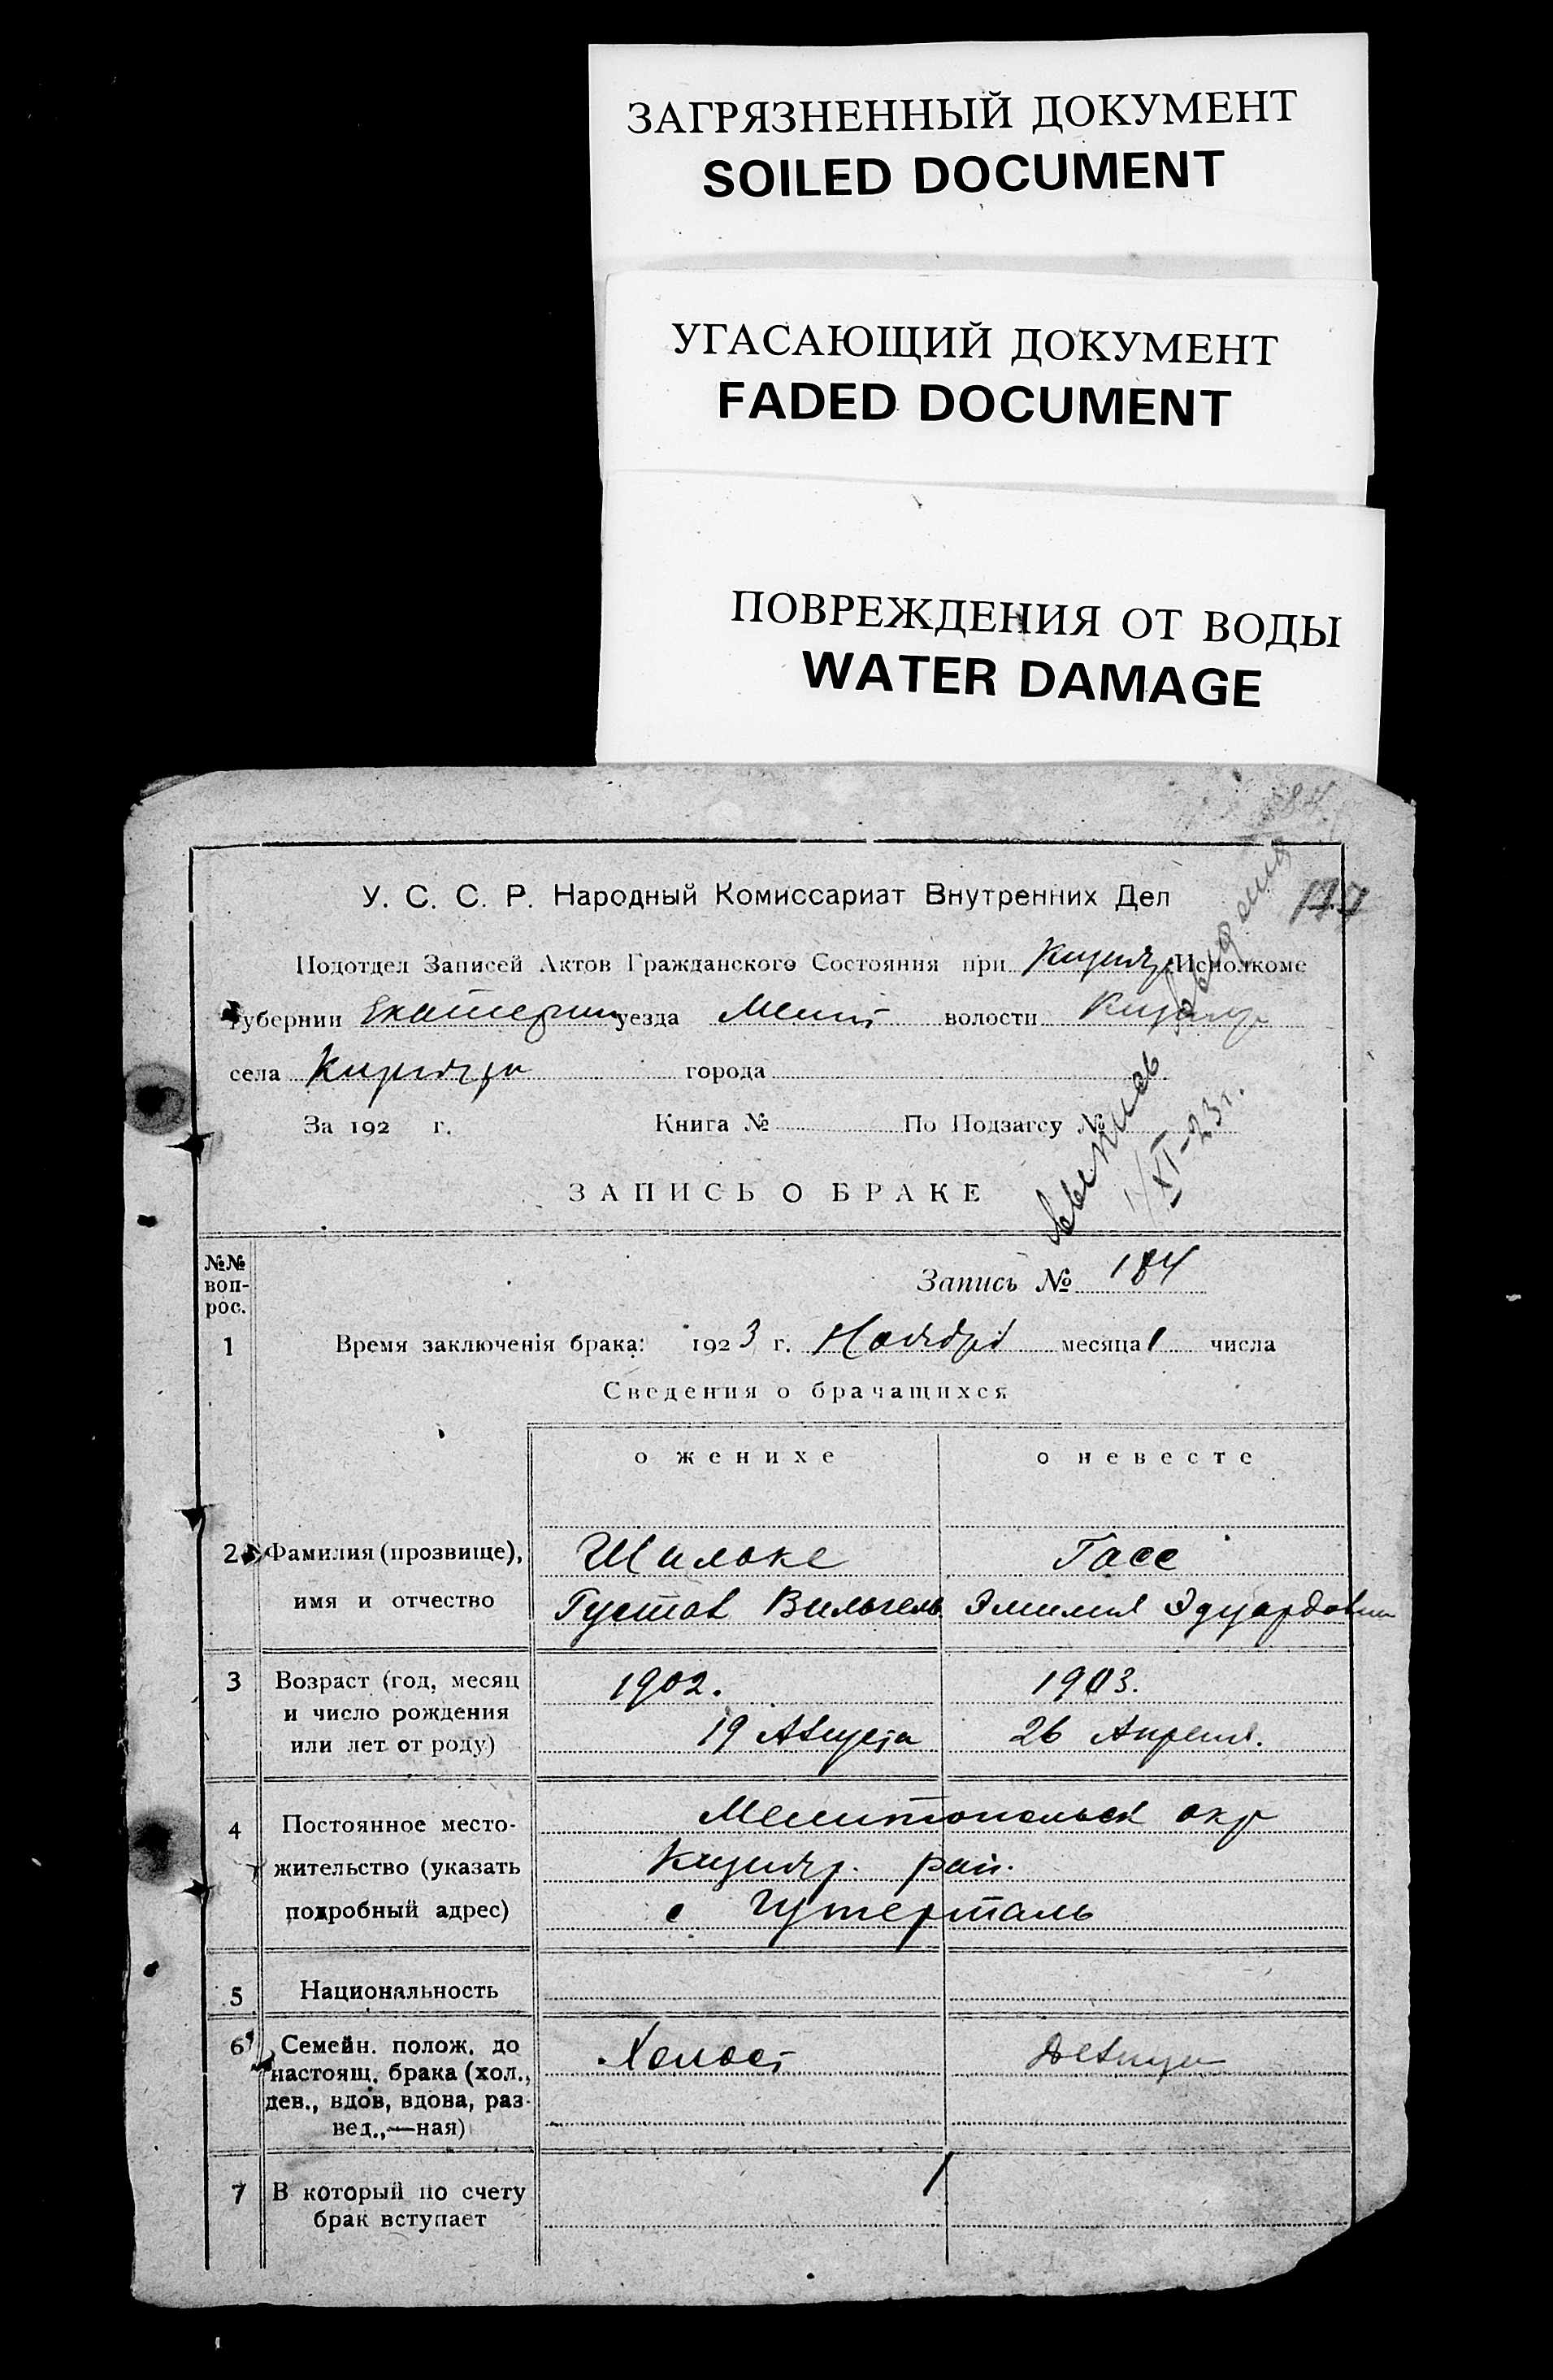 ЗАГРЯЗНЕННЫЙ ДОКУМЕНТ
SOILED DOCUMENT
УГАСАЮЩИЙ ДОКУМЕНТ
FADED DOCUMENT
ПОВРЕЖДЕНИЯ ОТ ВОДЫ
WATER DAMAGE
У. С. С. Р. Народный Комиссариат Внутренних Дел
Подотдел Записей Актов Гражданского Состояния при Исполкоме
Губернии Екатерин уезда Мелит волости
села города
За 192 г. Книга № По Подзагсу №
XI-23 г.
ЗАПИСЬ О БРАКЕ
№№ воп- рос.
Запись № 184
1 Время заключенія брака: 1923 г. Ноября месяца 1 числа
Сведения о брачащихся
о женихе о невесте
2 Фамилия (прозвище), Шильке Гасс
имя и отчество Густав Вильгель Эмилия Эдуардовн
3 Возраст (год, месяц 1902. 1903.
и число рождения
или лет от роду) 19 Августа 26 Апреля.
4 Постоянное место- Мелитопольск окр
жительство (указать рай.
подробный адрес) с Гутерталь
5 Национальность
6 Семейн. полож. до Холост Девица
настоящ. брака (хол.,
дев., вдов, вдова, раз-
вед.,—ная)
7 В который по счету 1
брак вступает